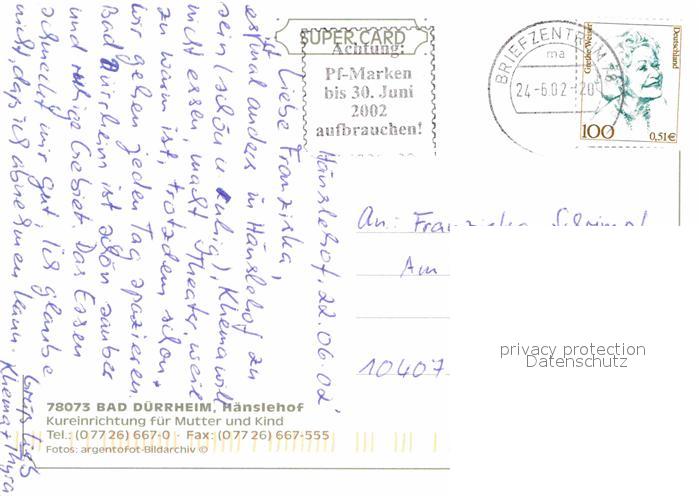 SUPER CARD
Achtung:
Pf-Marken
bis 30. Juni
2002
aufbrauchen!
BRIEFZENTRUM 78
ma
24-6.02-20
Grethe Weiser
Deutschland
100 0,51€
Hänslehof, 22.06.02,
Liebe Franziska,
es ist mal anders in Hänslehof zu
sein (schön u. ruhig), Khema will
nicht essen, macht Theater, weil
zu warm ist, trotzdem schön.
Wir gehen jeden Tag spazieren.
Bad Dürrheim ist schön sauber
und ruhige Gebiet. Das Essen
schmeckt mir gut, ich glaube
nicht, dass ich abnehmen kann.
Gruß
Khema + Thyra
An: Franziska
Am
10407
privacy protection
Datenschutz
78073 BAD DÜRRHEIM, Hänslehof
Kureinrichtung für Mutter und Kind
Tel.: (0 77 26) 667-0 · Fax: (0 77 26) 667-555
Fotos: argentofot-Bildarchiv ©